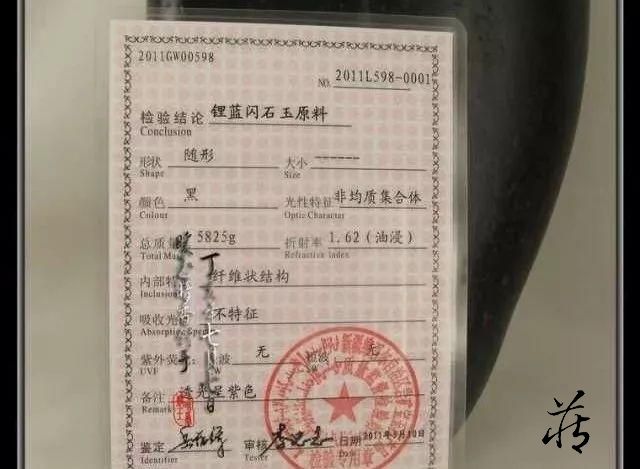 2011GW00598
NO. 2011L598-0001
检验结论 锂蓝闪石玉原料
Conclusion
形状 随形 大小 ------
Shape Size
颜色 黑 光性特征 非均质集合体
Colour Optic Character
总质量 5825g 折射率 1.62（油浸）
Total Mass Refractive index
内部特 纤维状结构
Inclusion
吸收光 不特征
Absorption Spe
紫外荧 波 无 短波 无
UVF W
备注 透光呈紫色
Remark
鉴定 审核 日期 2011年3月10日
Tester Date
检验专用章
莊